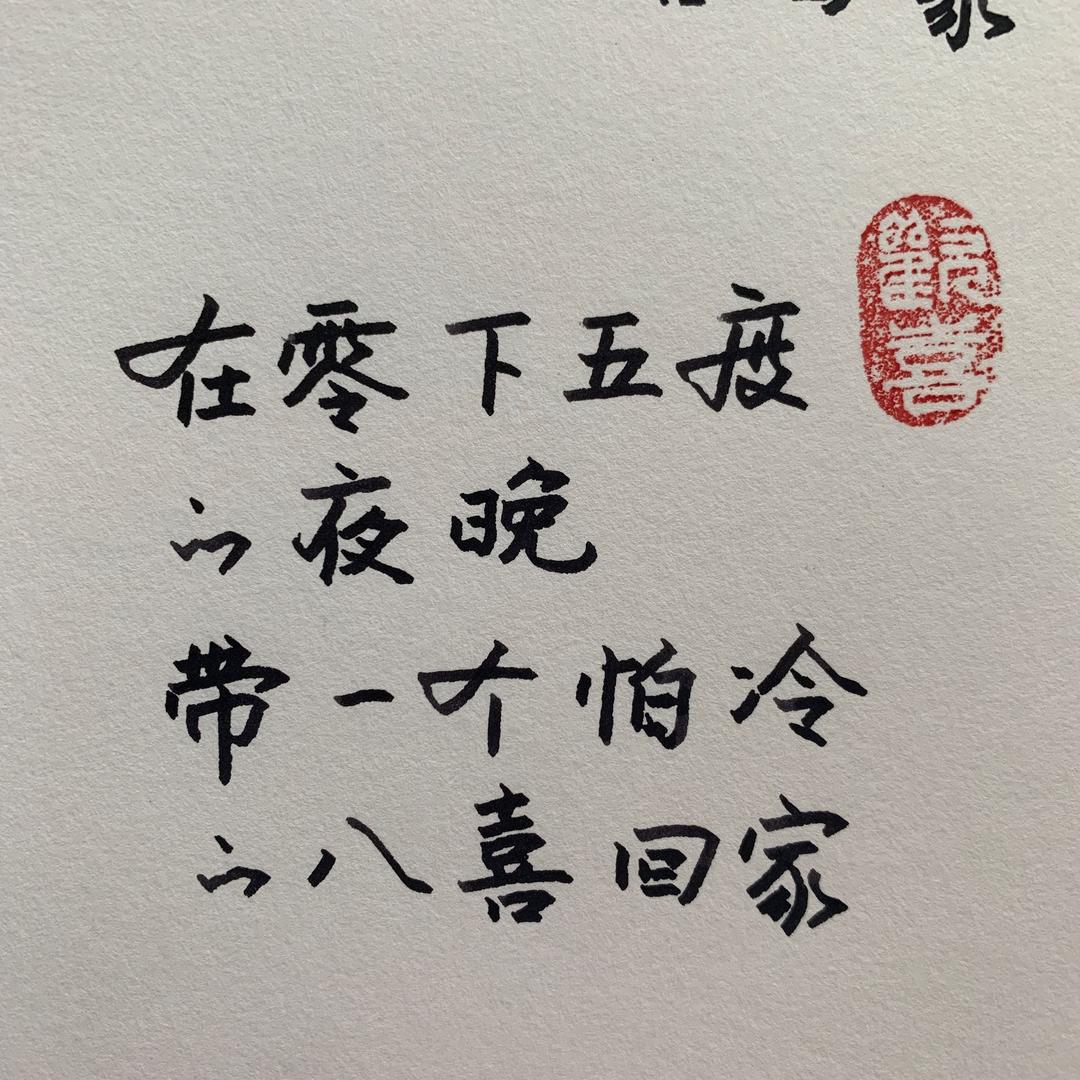 家
在零下五度
的夜晚
带一个怕冷
的八喜回家